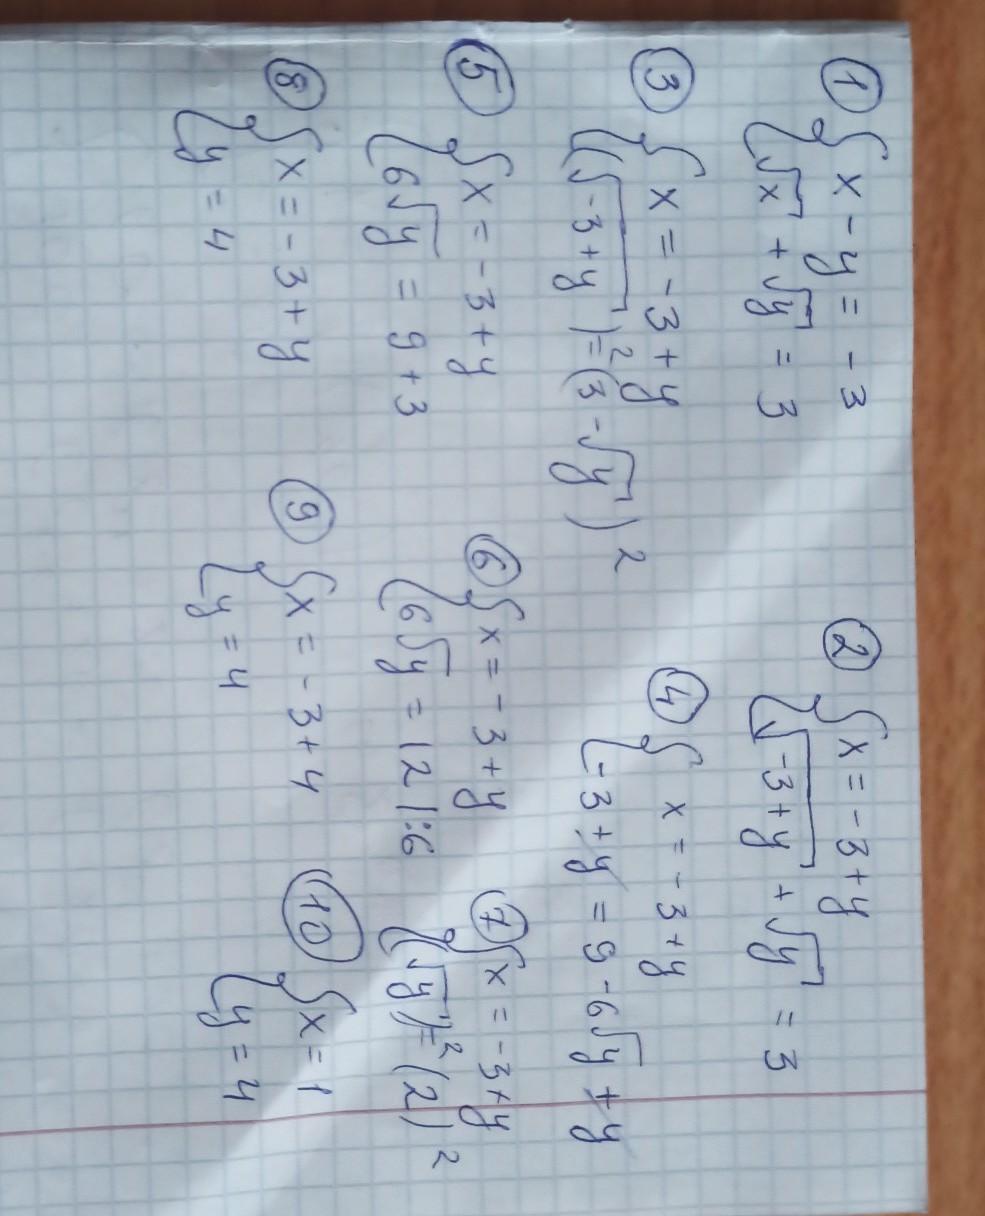 ① { x - y = -3
√x + √y = 3
② { x = -3 + y
√-3+y + √y = 3
③ { x = -3 + y
(√-3+y)² = (3 - √y)²
④ { x = -3 + y
-3 + y = 9 - 6√y + y
⑤ { x = -3 + y
6√y = 9 + 3
⑥ { x = -3 + y
6√y = 12 |:6
⑦ { x = -3 + y
(√y)² = (2)²
⑧ { x = -3 + y
y = 4
⑨ { x = -3 + 4
y = 4
⑩ { x = 1
y = 4